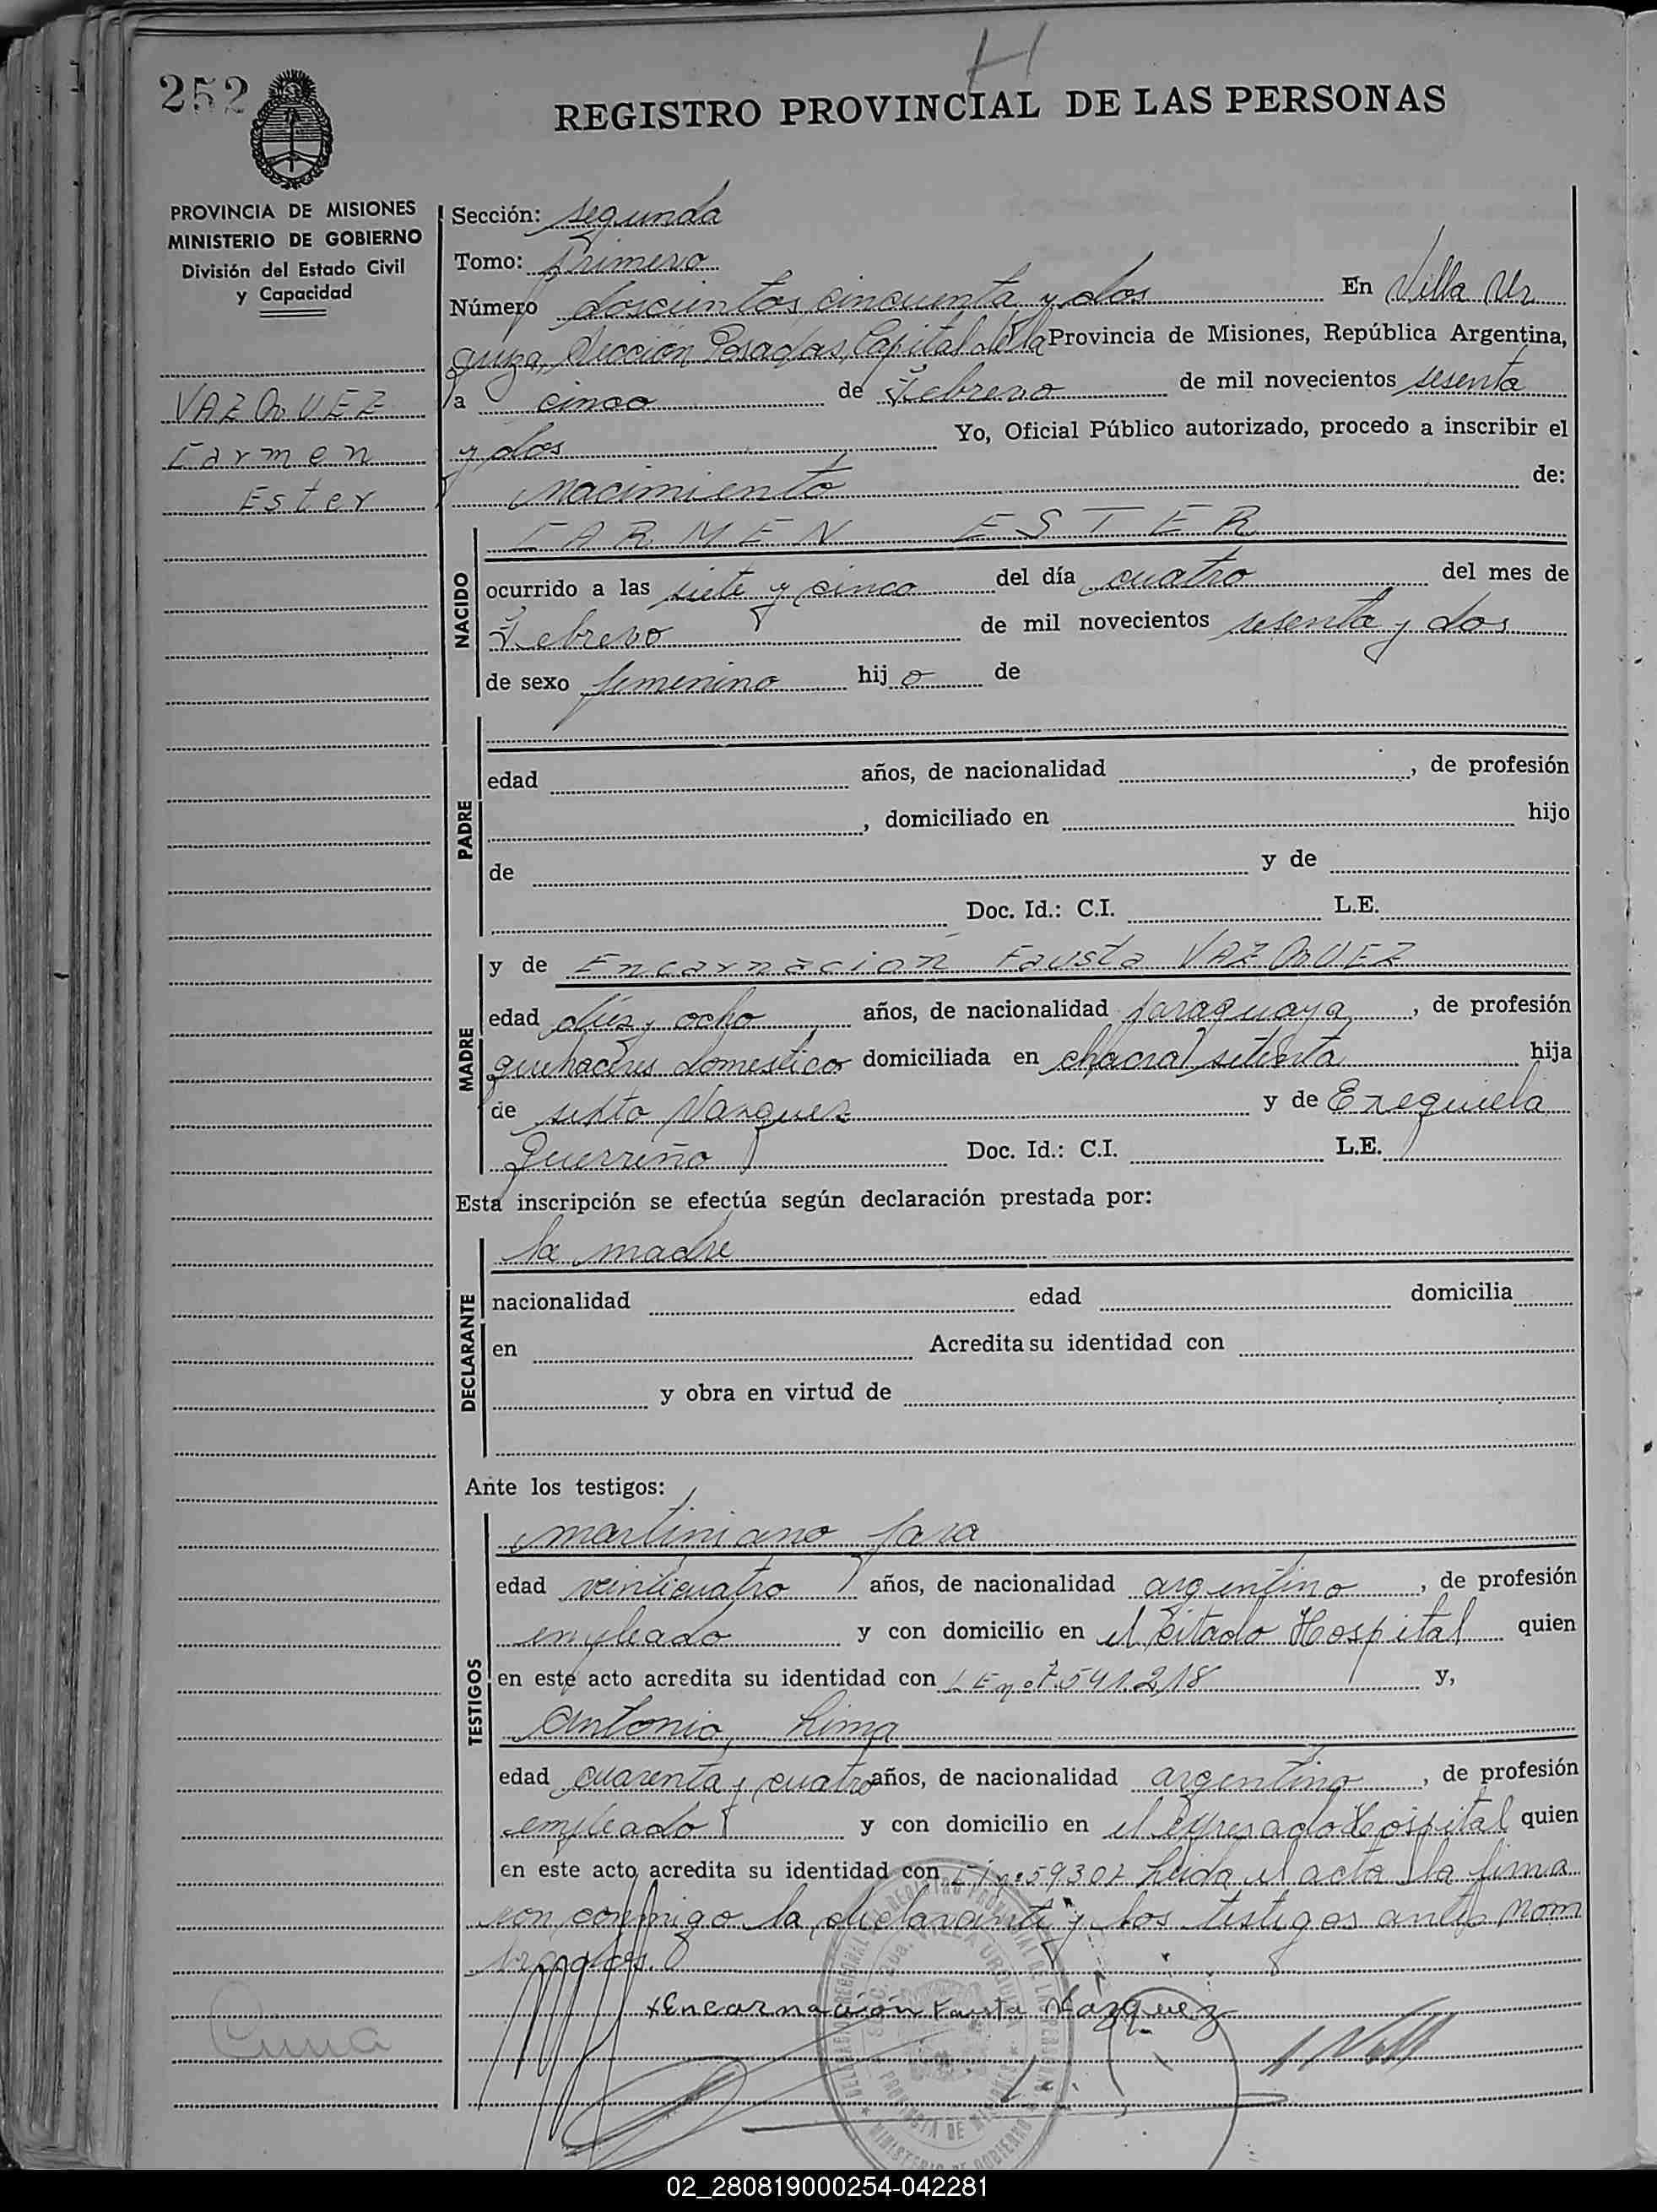 252
REGISTRO PROVINCIAL DE LAS PERSONAS
PROVINCIA DE MISIONES
MINISTERIO DE GOBIERNO
División del Estado Civil
y Capacidad
VAZQUEZ
Carmen
Ester
Sección: segunda
Tomo: primero
Número doscientos cincuenta y dos En Villa Ur
quiza, Sección Posadas, Capital de la Provincia de Misiones, República Argentina,
a cinco de Febrero de mil novecientos sesenta
y dos Yo, Oficial Público autorizado, procedo a inscribir el
nacimiento de:
NACIDO
CARMEN ESTER
ocurrido a las siete y cinco del día cuatro del mes de
Febrero de mil novecientos sesenta y dos
de sexo femenino hijo de
PADRE
edad años, de nacionalidad , de profesión
, domiciliado en hijo
de y de
Doc. Id.: C.I. L.E.
MADRE
y de Encarnación Fausta VAZQUEZ
edad dies y ocho años, de nacionalidad paraguaya, de profesión
quehaceres domestico domiciliada en chacra setenta hija
de sixto Vazquez y de Ezequiela
Guerreño Doc. Id.: C.I. L.E.
Esta inscripción se efectúa según declaración prestada por:
DECLARANTE
la madre
nacionalidad edad domicilia
en Acredita su identidad con
y obra en virtud de
Ante los testigos:
TESTIGOS
martiniano Jara
edad veinticuatro años, de nacionalidad argentino, de profesión
empleado y con domicilio en el citado Hospital quien
en este acto acredita su identidad con LE nº 7.541.218 y,
Antonio Lima
edad cuarenta y cuatro años, de nacionalidad argentino, de profesión
empleado y con domicilio en el expresado Hospital quien
en este acto acredita su identidad con nº 59307 Leida el acta la firma
ron conmigo la declarante y los testigos antes nom
brados.
xEncarnación Fausta Vázquez
02_280819000254-042281